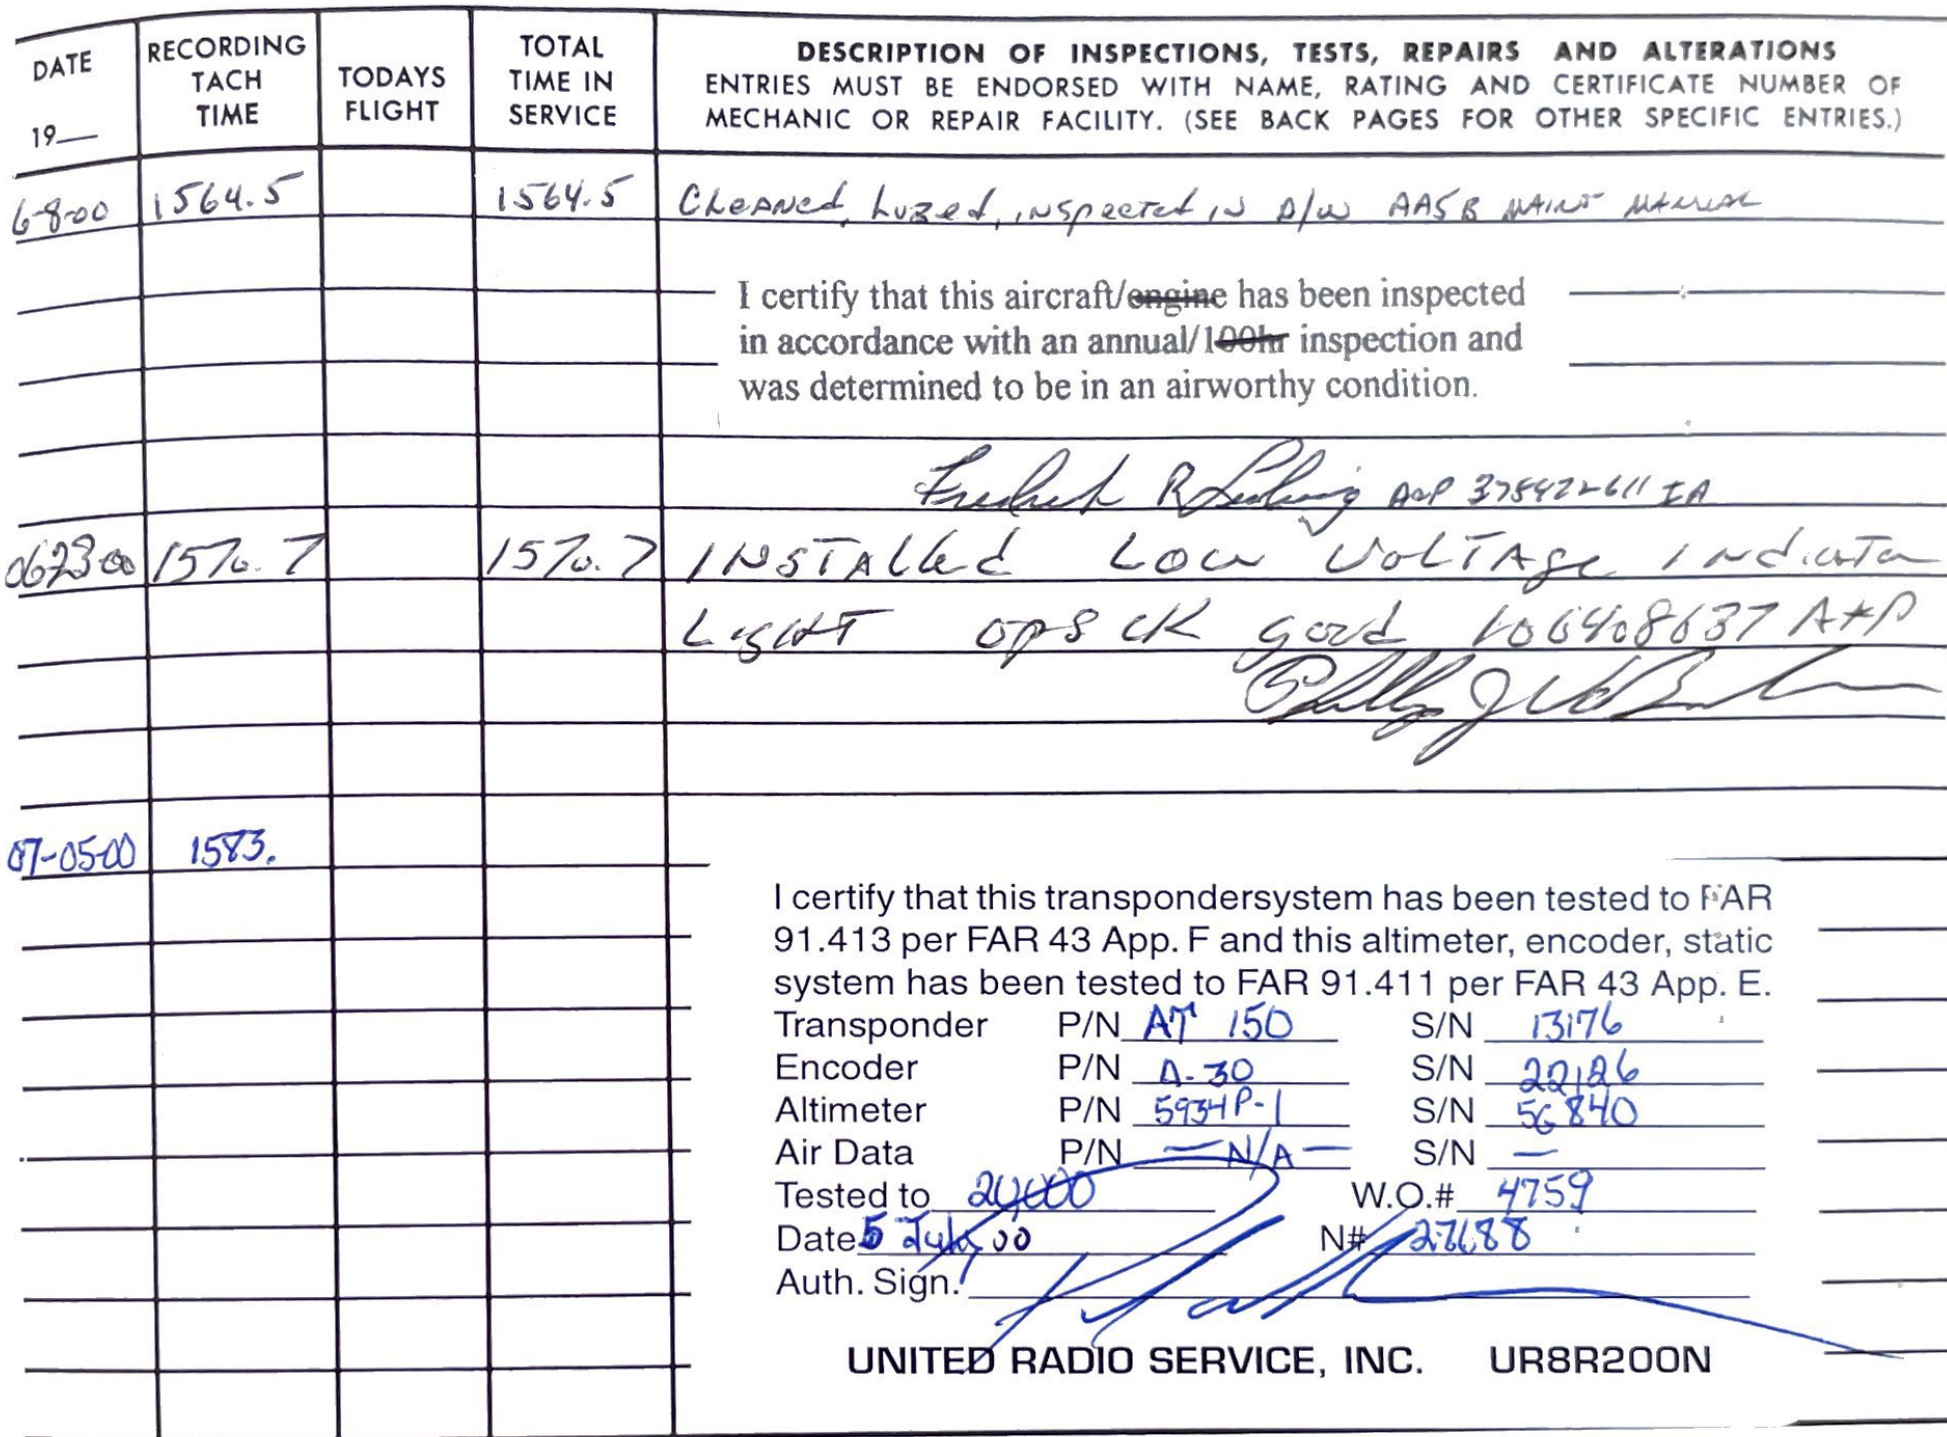 DATE RECORDING TACH TIME TODAYS FLIGHT TOTAL TIME IN SERVICE DESCRIPTION OF INSPECTIONS, TESTS, REPAIRS AND ALTERATIONS
19— ENTRIES MUST BE ENDORSED WITH NAME, RATING AND CERTIFICATE NUMBER OF
MECHANIC OR REPAIR FACILITY. (SEE BACK PAGES FOR OTHER SPECIFIC ENTRIES.)
6-8-00 1564.5 1564.5 Cleaned, Lubed, inspected in A/W AA5B MAINT MANUAL
I certify that this aircraft/engine has been inspected
in accordance with an annual/100hr inspection and
was determined to be in an airworthy condition.
Fredrick R A&P 378422611 IA
062300 1570.7 1570.7 INSTALLed LOW VOLTAGE Indicator
LIGHT OPS CK good 106408637 A+P
Phillip J
07-05-00 1583.
I certify that this transpondersystem has been tested to FAR
91.413 per FAR 43 App. F and this altimeter, encoder, static
system has been tested to FAR 91.411 per FAR 43 App. E.
Transponder P/N AT 150 S/N 13176
Encoder P/N A-30 S/N 22126
Altimeter P/N 5934P-1 S/N 5G840
Air Data P/N — N/A — S/N —
Tested to 20,000 W.O.# 4759
Date 5 July 00 N# 27688
Auth. Sign.
UNITED RADIO SERVICE, INC. UR8R200N